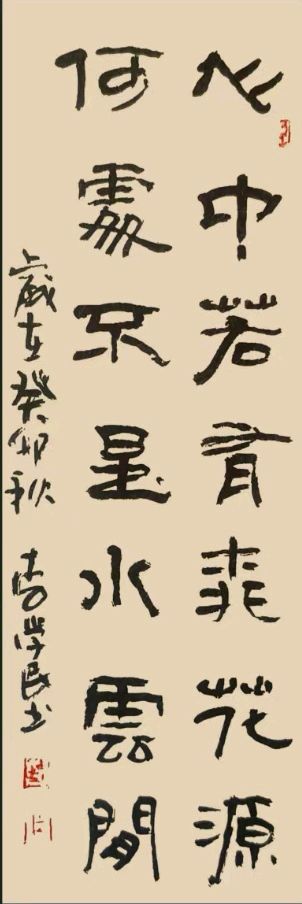 心中若有桃花源
何處不是水雲間
歲在癸卯秋 李学民书